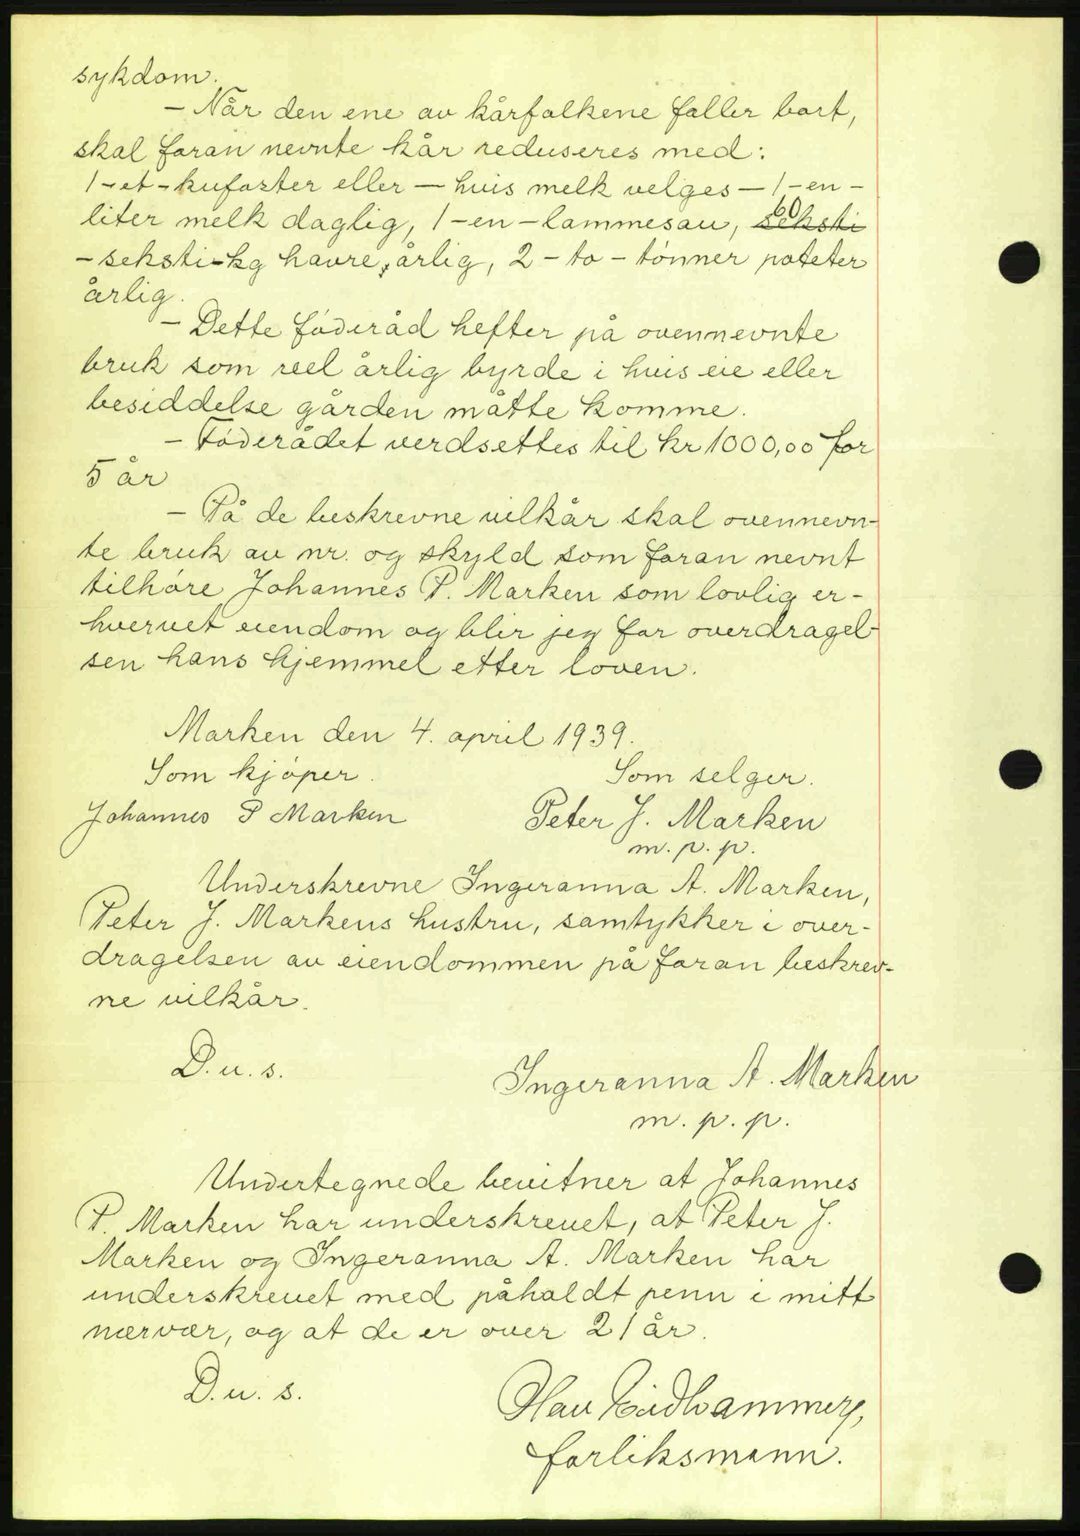 sykdom.
- Når den ene av kårfolkene faller bort,
skal foran nevnte kår reduseres med:
1-et-kuforter eller - hvis melk velges - 1-en-
liter melk daglig, 1-en-lammesau, seksti 60
-seksti-kg havre, årlig, 2-to-tønner poteter
årlig.
- Dette føderåd hefter på ovennevnte
bruk som reel årlig byrde i hvis eie eller
besiddelse gården måtte komme.
- Føderådet verdsettes til kr 1000,00 for
5 år
- På de beskrevne vilkår skal ovennevn-
te bruk av nr. og skyld som foran nevnt
tilhøre Johannes P. Marken som lovlig er-
hvervet eiendom og blir jeg for overdragel-
sen hans hjemmel etter loven.
Marken den 4. april 1939.
Som kjøper. Som selger.
Johannes P Marken Peter J. Marken
m. p. p.
Underskrevne Ingeranna A. Marken,
Peter J. Markens hustru, samtykker i over-
dragelsen av eiendommen på foran beskrev-
ne vilkår.
D. u. s.
Ingeranna A. Marken
m. p. p.
Undertegnede bevitner at Johannes
P. Marken har underskrevet, at Peter J.
Marken og Ingeranna A. Marken har
underskrevet med påholdt penn i mitt
nærvær, og at de er over 21 år.
D. u. s.
Olav Eidhammer,
forliksmann.